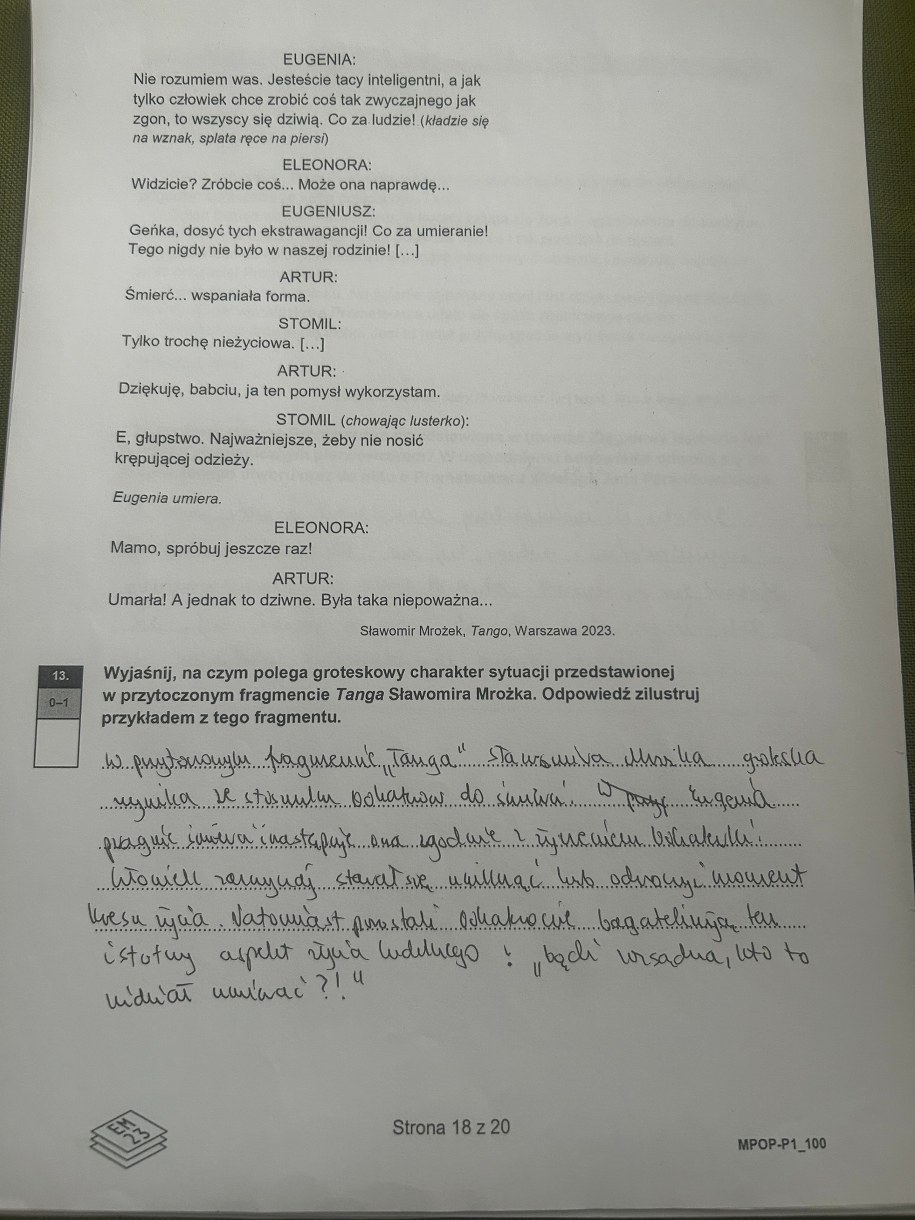 EUGENIA:
Nie rozumiem was. Jesteście tacy inteligentni, a jak
tylko człowiek chce zrobić coś tak zwyczajnego jak
zgon, to wszyscy się dziwią. Co za ludzie! (kładzie się
na wznak, splata ręce na piersi)
ELEONORA:
Widzicie? Zróbcie coś... Może ona naprawdę...
EUGENIUSZ:
Geńka, dosyć tych ekstrawagancji! Co za umieranie!
Tego nigdy nie było w naszej rodzinie! [...]
ARTUR:
Śmierć... wspaniała forma.
STOMIL:
Tylko trochę nieżyciowa. [...]
ARTUR:
Dziękuję, babciu, ja ten pomysł wykorzystam.
STOMIL (chowając lusterko):
E, głupstwo. Najważniejsze, żeby nie nosić
krępującej odzieży.
Eugenia umiera.
ELEONORA:
Mamo, spróbuj jeszcze raz!
ARTUR:
Umarła! A jednak to dziwne. Była taka niepoważna...
Sławomir Mrożek, Tango, Warszawa 2023.
13.
0–1
Wyjaśnij, na czym polega groteskowy charakter sytuacji przedstawionej
w przytoczonym fragmencie Tanga Sławomira Mrożka. Odpowiedź zilustruj
przykładem z tego fragmentu.
W przytoczonym fragmencie „Tanga" Sławomira Mrożka groteska
wynika ze stosunku bohaterów do śmierci. Eugenia
pragnie śmierci i następuje ona zgodnie z życzeniem bohaterki.
Człowiek zazwyczaj starał się uniknąć lub odroczyć moment
kresu życia. Natomiast pozostali bohaterowie bagatelizują ten
istotny aspekt życia ludzkiego: „bądź rozsądna, kto to
widział umierać?!"
EM
23
Strona 18 z 20
MPOP-P1_100